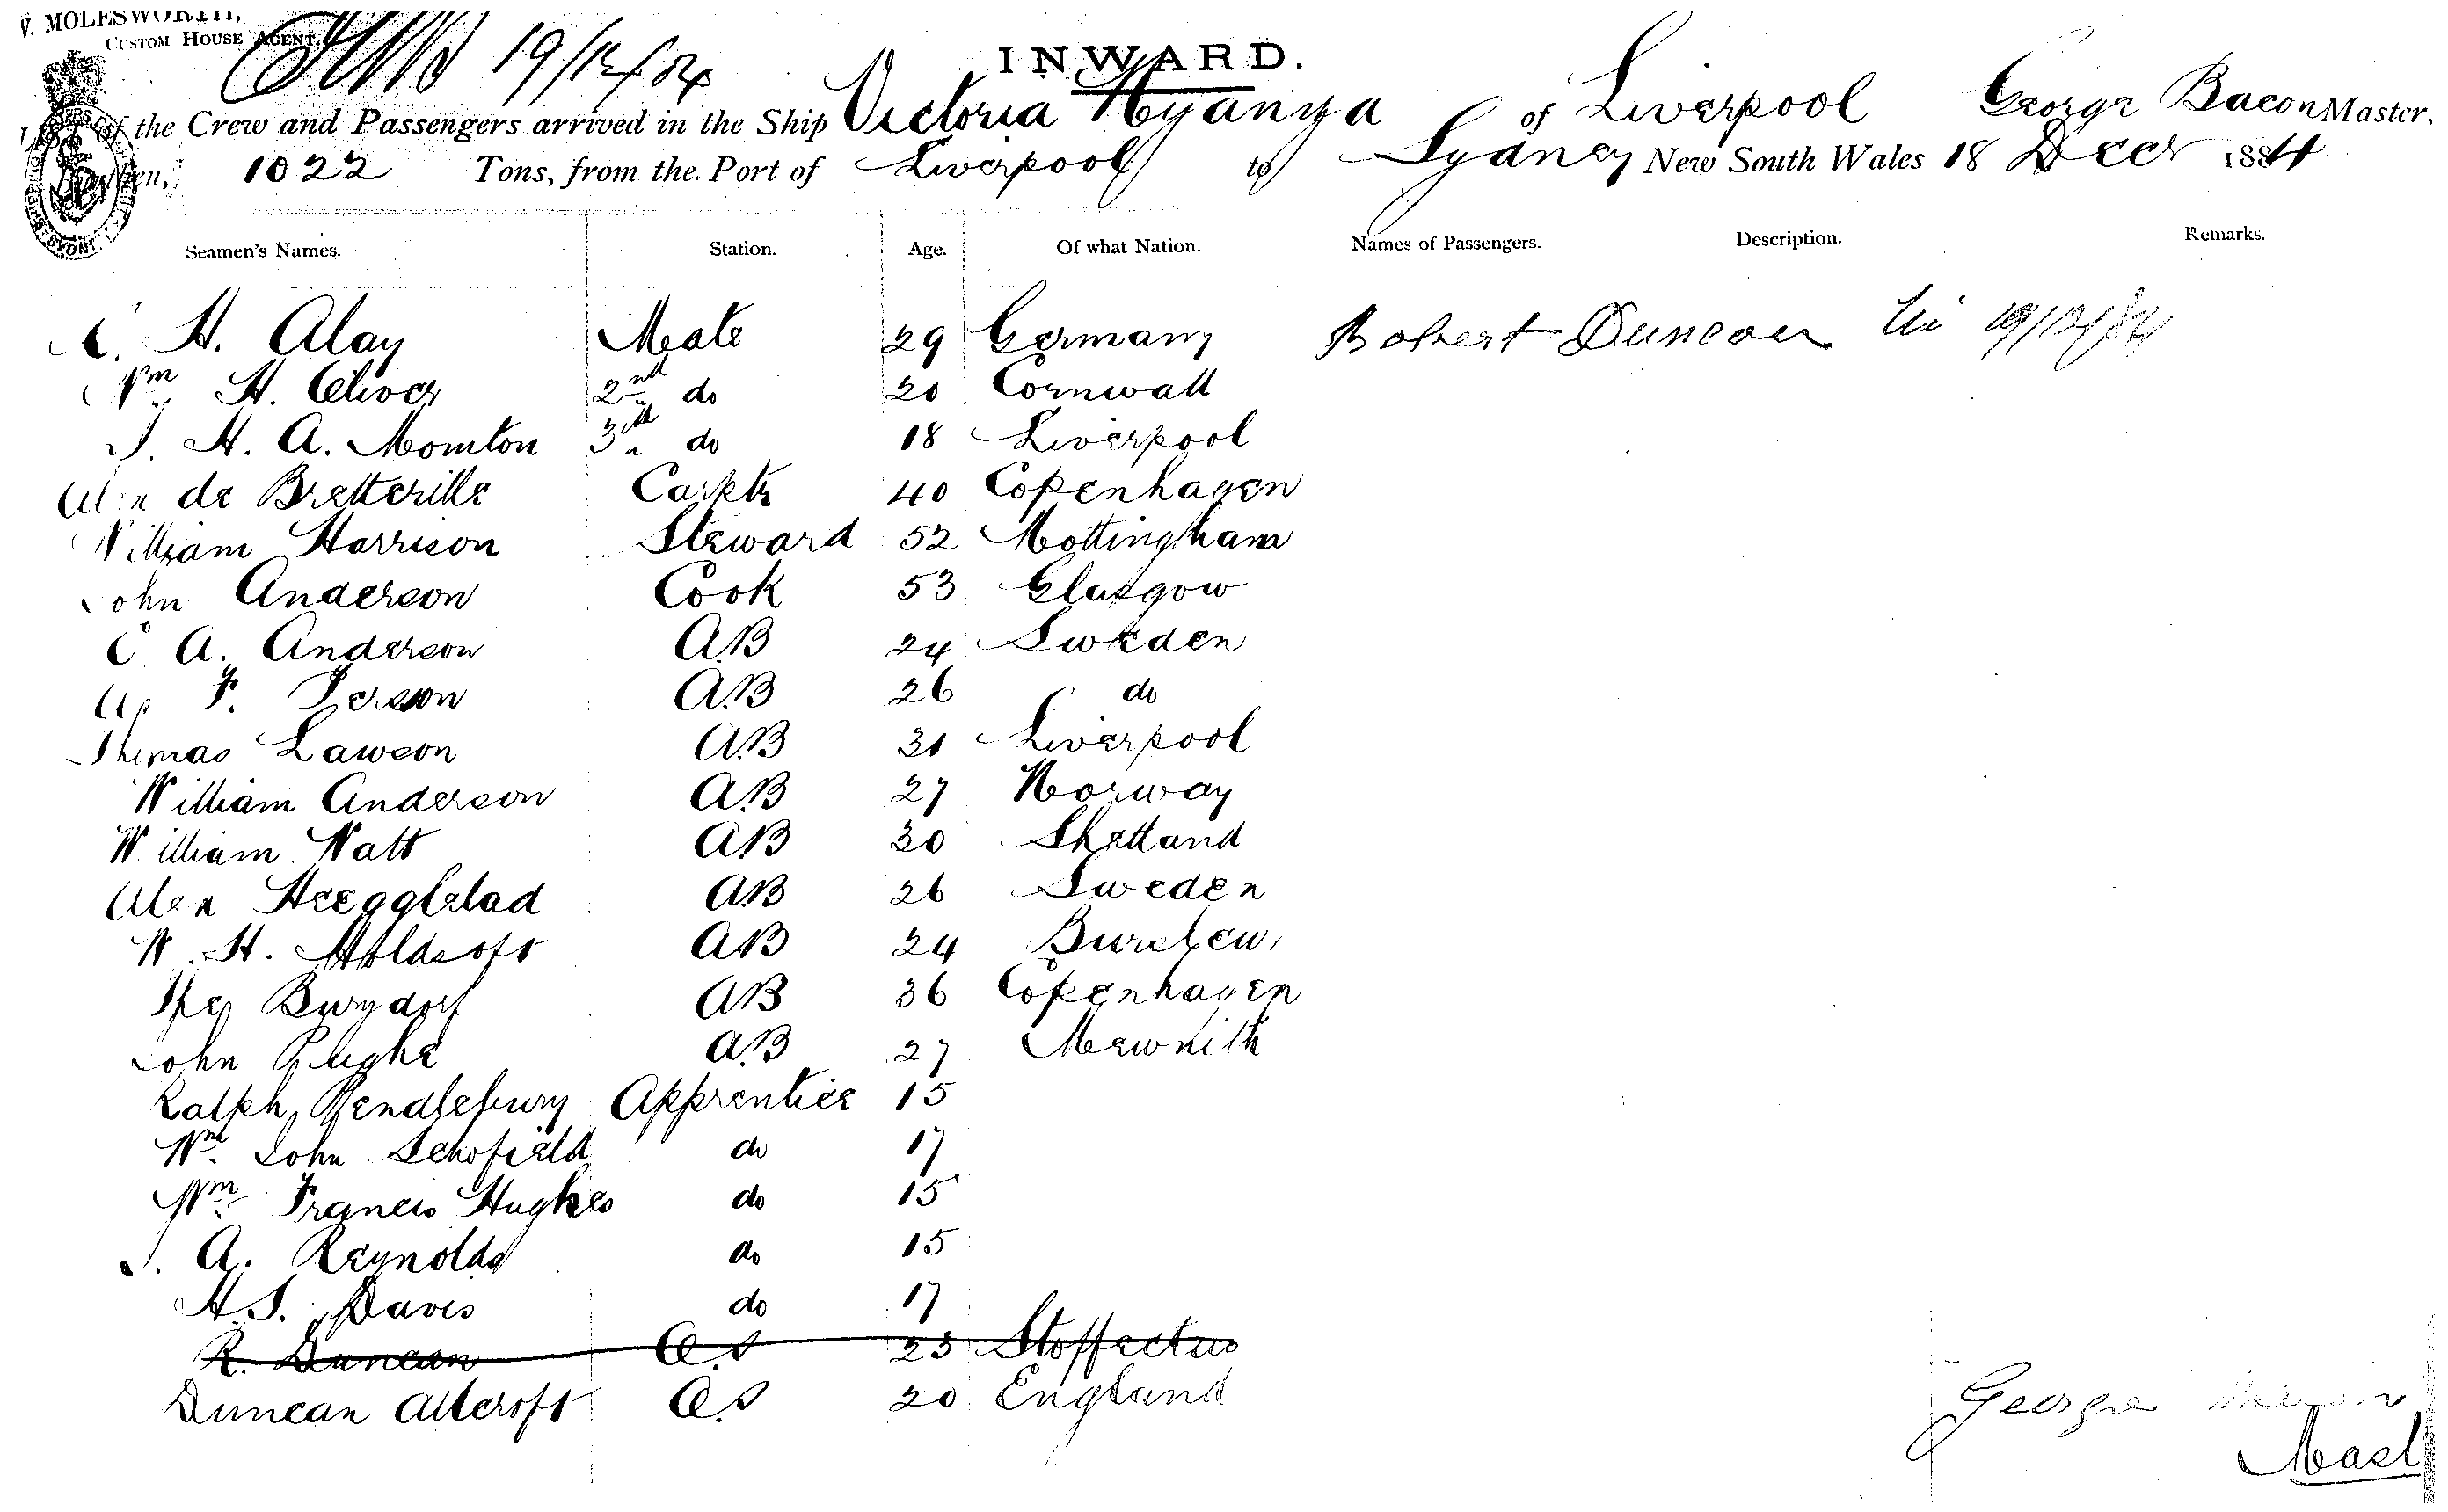 W. MOLESWORTH,
CUSTOM HOUSE AGENT,
19/12/84
INWARD.
of the Crew and Passengers arrived in the Ship Victoria Nyanza of Liverpool George Bacon Master,
Burthen, 1022 Tons, from the Port of Liverpool to Sydney New South Wales 18 Decr 1884
Seamen's Names. Station. Age. Of what Nation. Names of Passengers. Description. Remarks.
H. Alay Mate 29 Germany Robert Duncan 19/12/84
Wm H. Oliver 2nd do 20 Cornwall
J. H. A. Momton 3rd do 18 Liverpool
Alex de Bretteville Carptr 40 Copenhagen
William Harrison Steward 52 Nottingham
John Anderson Cook 53 Glasgow
C A. Anderson A.B 24 Sweden
F. Person A.B 26 do
Thomas Lawson A.B 31 Liverpool
William Anderson A.B 27 Norway
William Watt A.B 30 Shetland
Alex A.B 26 Sweden
W. H. Holdcroft A.B 24
Burgdorf A.B 36 Copenhagen
John Pughe A.B 27
Ralph Pendlebury Apprentice 15
Wm John Schofield do 17
Wm Francis Hughes do 15
J. A. Reynolds do 15
H. J. Davis do 17
R. Duncan O.S 23
Duncan Allcroft O.S 20 England
George Bacon
Mast